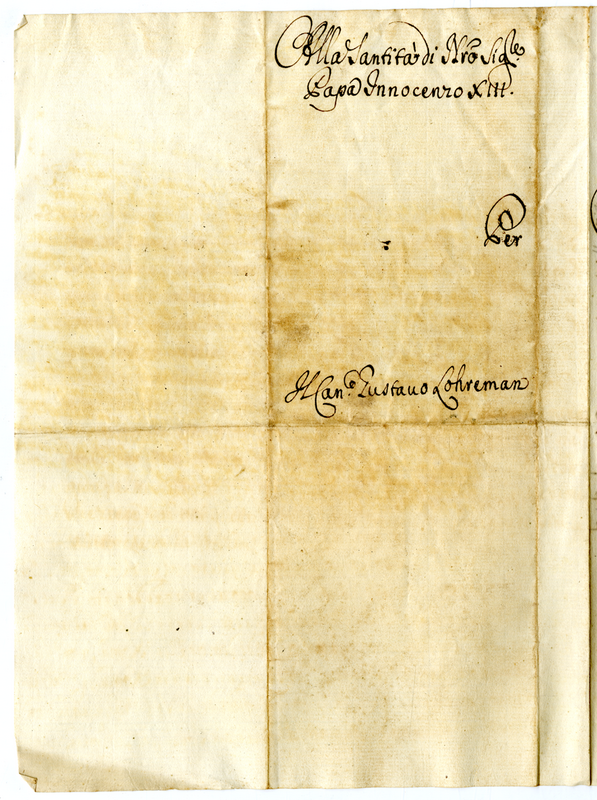 Alla Santità di Nrō Sig.re
Papa Innocenzo XIII.
Per
Il Can.co Gustavo Lohreman